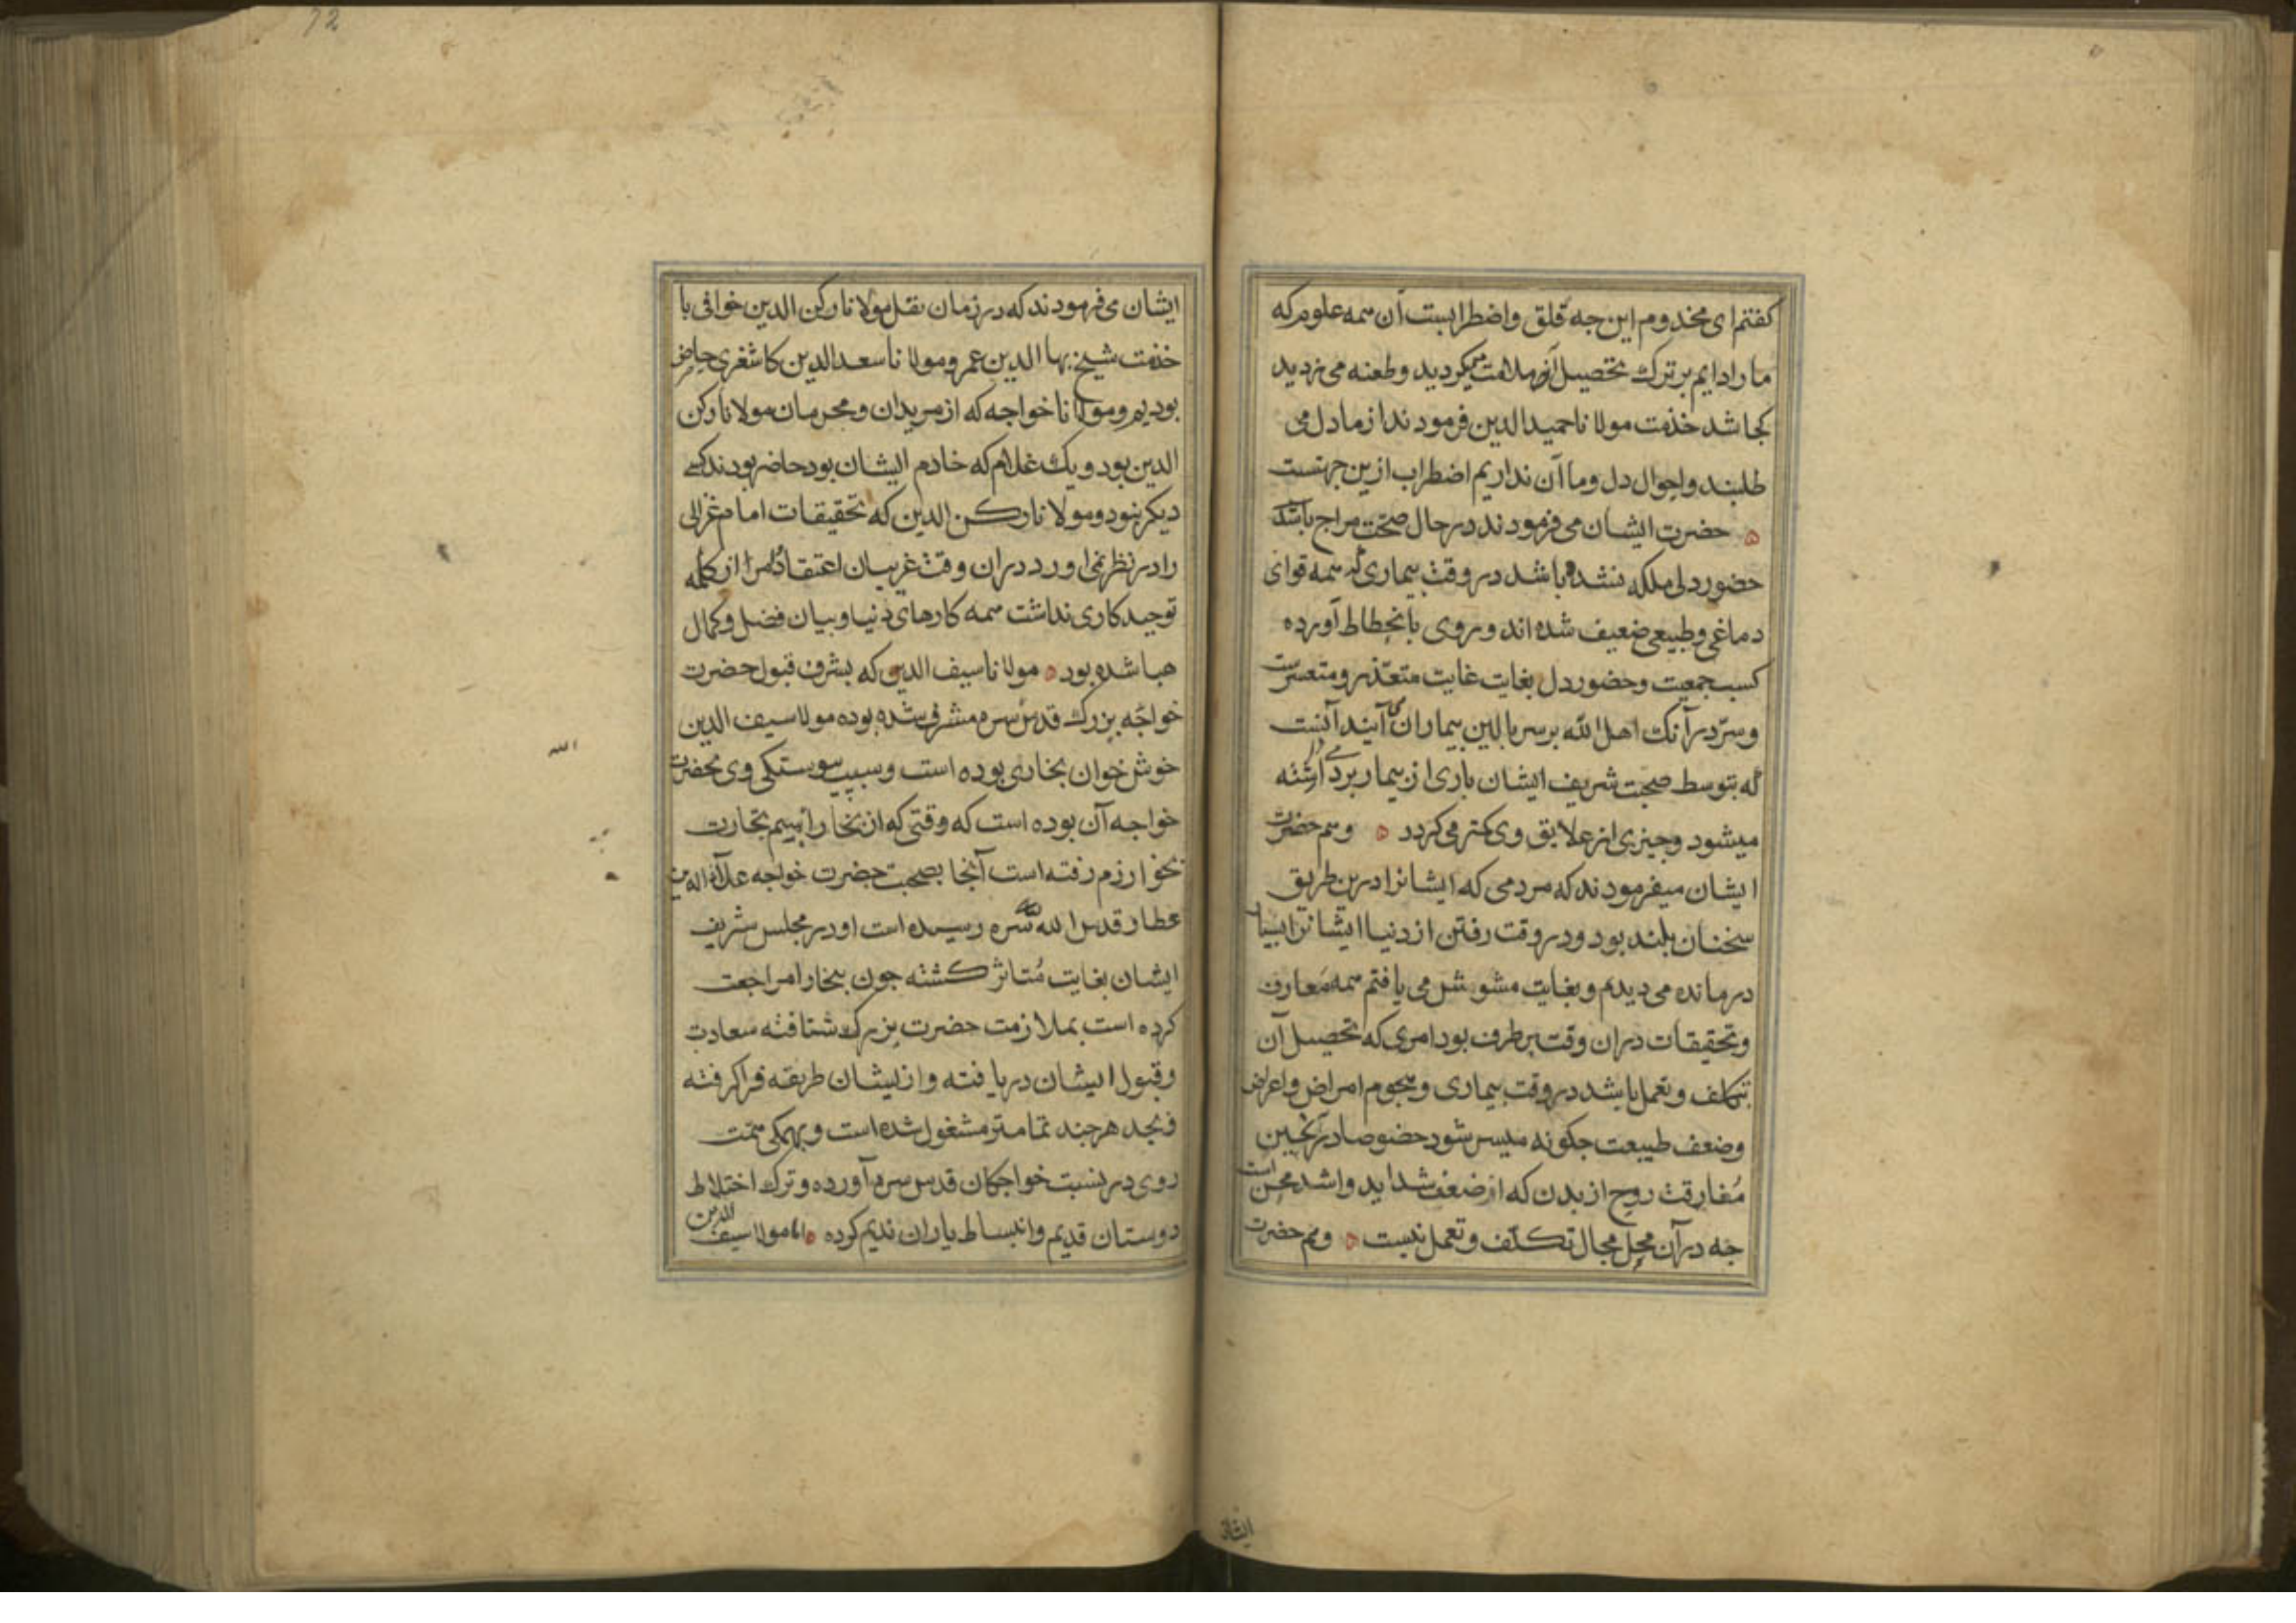 کفتم ای مخدوم این جه قلق واضطرابست آن همه علوم که
ما را دایم بر ترک تحصیل آن ملامت میکردید وطعنه می زدید
کجا شد خذمت مولانا حمیدالدین فرمودند از ما دل می
طلبند واحوال دل وما آن نداریم اضطراب ازین جهتست
حضرت ایشان می فرمودند در حال صحت مزاج باشد
حضور دلی ملکه نشده باشد در وقت بیماری که همه قوای
دماغی وطبیعی ضعیف شده اند وروی بانحطاط آورده
کسب جمعیت وحضور دل بغایت غایت متعذر ومتعسرست
وسر در آنک اهل الله بر سر بالین بیماران می آیند آنست
که بتوسط صحبت شریف ایشان باری از بیمار برداشته
میشود وجیزی از علایق وی کمتر می کردد ه وهم حضرت
ایشان میفرمودند که مردمی که ایشانرا درین طریق
سخنان بلند بود ودر وقت رفتن از دنیا ایشانرا بسیار
درمانده می دیدم وبغایت مشوش می یافتم همه معارف
وتحقیقات دران وقت برطرف بود امری که تحصیل آن
بتکلف وتعمل باشد در وقت بیماری وهجوم امراض واعراض
وضعف طبیعت جکونه میسر شود خصوصا در حین
مفارقت روح از بدن که از ضعف شداید واشد محن است
جه در آن محل مجال تکلف وتعمل نیست ه وهم حضرت
ایشان
72
ایشان می فرمودند که در زمان نقل مولانا رکن الدین خوافی با
خذمت شیخ بها الدین عمر ومولانا سعدالدین کاشغری حاضر
بودیم ومولانا خواجه که از مریدان ومحرمان مولانا رکن
الدین بود ویک غلام که خادم ایشان بود حاضر بودند کسی
دیکر نبود ومولانا رکن الدین که تحقیقات امام غزالی
را در نظر نمی اورد دران وقت غریبان اعتقاد کلمه
توحید کاری نداشت همه کارهای دنیا وبیان فضل وکمال
هبا شده بود ه مولانا سیف الدین که بشرف قبول حضرت
خواجه بزرک قدس سره مشرف شده بوده مولا سیف الدین
خوش خوان بخاری بوده است وسبب پیوستکی وی بحضرت
خواجه آن بوده است که وقتی که از بخارا برسم تجارت
بخوارزم رفته است آنجا بصحبت حضرت خواجه علاء الدین
عطار قدس الله سره رسیده است اودر مجلس شریف
ایشان بغایت متاثر کشته جون ببخارا مراجعت
کرده است بملازمت حضرت بزرک شتافته سعادت
وقبول ایشان دریافته واز ایشان طریقه فرا کرفته
وبجد هرجند تمامتر مشغول شده است وبهمکی همت
روی در نسبت خواجکان قدس سره آورده وترک اختلاط
دوستان قدیم وانبساط یاران ندیم کرده ه اما مولا سیف الدین
الله